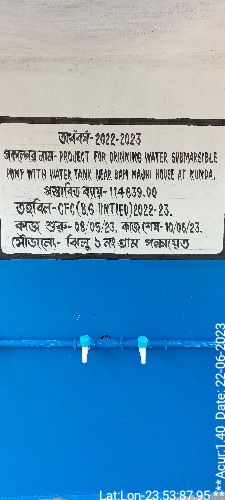 অর্থবর্ষ-2022-2023
প্রকল্পের নাম- PROJECT FOR DRINKING WATER SUBMARSIBLE
PUMP WITH WATER TANK NEAR BAM MAJHI HOUSE AT KUNDA.
প্রস্তাবিত ব্যয়-114639.00
তহবিল-CFC(BG UNTIED)2022-23.
কাজ শুরু-08/05/23. কাজ শেষ-10/06/23.
সৌজন্যে,- ঝিলু ১ নং গ্রাম পঞ্চায়েত
Lat:Lon-23.53:87.95 **
***Acur:1.40 Date: 22-06-2023